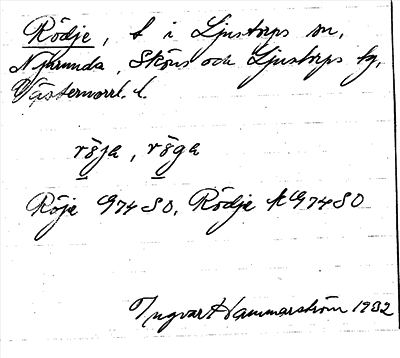 Rödje, t i Ljustorps sn,
Njurunda, Sköns och Ljustorps tg,
Västernorrl. l.
röja, röga
Röje G74SO, Rödje kG74SO
Ingvar Hammarström 1932